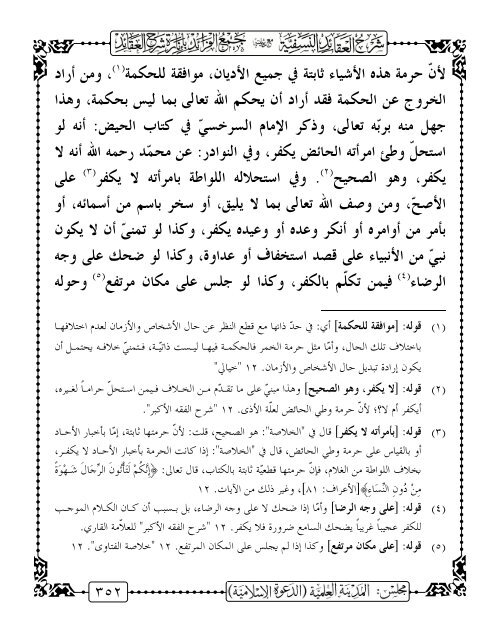 شرح العقائد النسفية مع حاشية جمع الفرائد بإنارة شرح العقائد
لأنّ حرمة هذه الأشياء ثابتة في جميع الأديان، موافقة للحكمة(١)، ومن أراد
الخروج عن الحكمة فقد أراد أن يحكم الله تعالى بما ليس بحكمة، وهذا
جهل منه بربّه تعالى، وذكر الإمام السرخسيّ في كتاب الحيض: أنه لو
استحلّ وطئ امرأته الحائض يكفر، وفي النوادر: عن محمّد رحمه الله أنه لا
يكفر، وهو الصحيح(٢). وفي استحلاله اللواطة بامرأته لا يكفر(٣) على
الأصحّ، ومن وصف الله تعالى بما لا يليق، أو سخر باسم من أسمائه، أو
بأمر من أوامره أو أنكر وعده أو وعيده يكفر، وكذا لو تمنىّ أن لا يكون
نبيّ من الأنبياء على قصد استخفاف أو عداوة، وكذا لو ضحك على وجه
الرضاء(٤) فيمن تكلّم بالكفر، وكذا لو جلس على مكان مرتفع(٥) وحوله
(١) قوله: [موافقة للحكمة] أي: في حدّ ذاتها مع قطع النظر عن حال الأشخاص والأزمان لعدم اختلافها
باختلاف تلك الحال، وأمّا مثل حرمة الخمر فالحكمة فيها ليست ذاتيّة، فتمنيّ خلافه يحتمل أن
يكون إرادة تبديل حال الأشخاص والأزمان. ١٢ "خيالي"
(٢) قوله: [لا يكفر، وهو الصحيح] وهذا مبنيّ على ما تقدّم من الخلاف فيمن استحلّ حراماً لغيره،
أيكفر أم لا؟؛ لأنّ حرمة وطي الحائض لعلّة الأذى. ١٢ "شرح الفقه الأكبر".
(٣) قوله: [بامرأته لا يكفر] قال في "الخلاصة": هو الصحيح، قلت: لأنّ حرمتها ثابتة، إمّا بأخبار الآحاد
أو بالقياس على حرمة وطي الحائض، قال في "الخلاصة": إذا كانت الحرمة بأخبار الآحاد لا يكفر،
بخلاف اللواطة من الغلام، فإنّ حرمتها قطعيّة ثابتة بالكتاب، قال تعالى: ﴿إِنَّكُمْ لَتَأْتُونَ الرِّجَالَ شَهْوَةً
مِنْ دُونِ النِّسَاءِ﴾[الأعراف: ٨١]، وغير ذلك من الآيات. ١٢
(٤) قوله: [على وجه الرضا] وأمّا إذا ضحك لا على وجه الرضاء، بل بسبب أن كان الكلام الموجب
للكفر عجيباً غريباً يضحك السامع ضرورة فلا يكفر. ١٢ "شرح الفقه الأكبر" للعلاّمة القاري.
(٥) قوله: [على مكان مرتفع] وكذا إذا لم يجلس على المكان المرتفع. ١٢ "خلاصة الفتاوى". ١٢
مجلس: المدينة العلمية (الدعوة الإسلامية)
٣٥٢